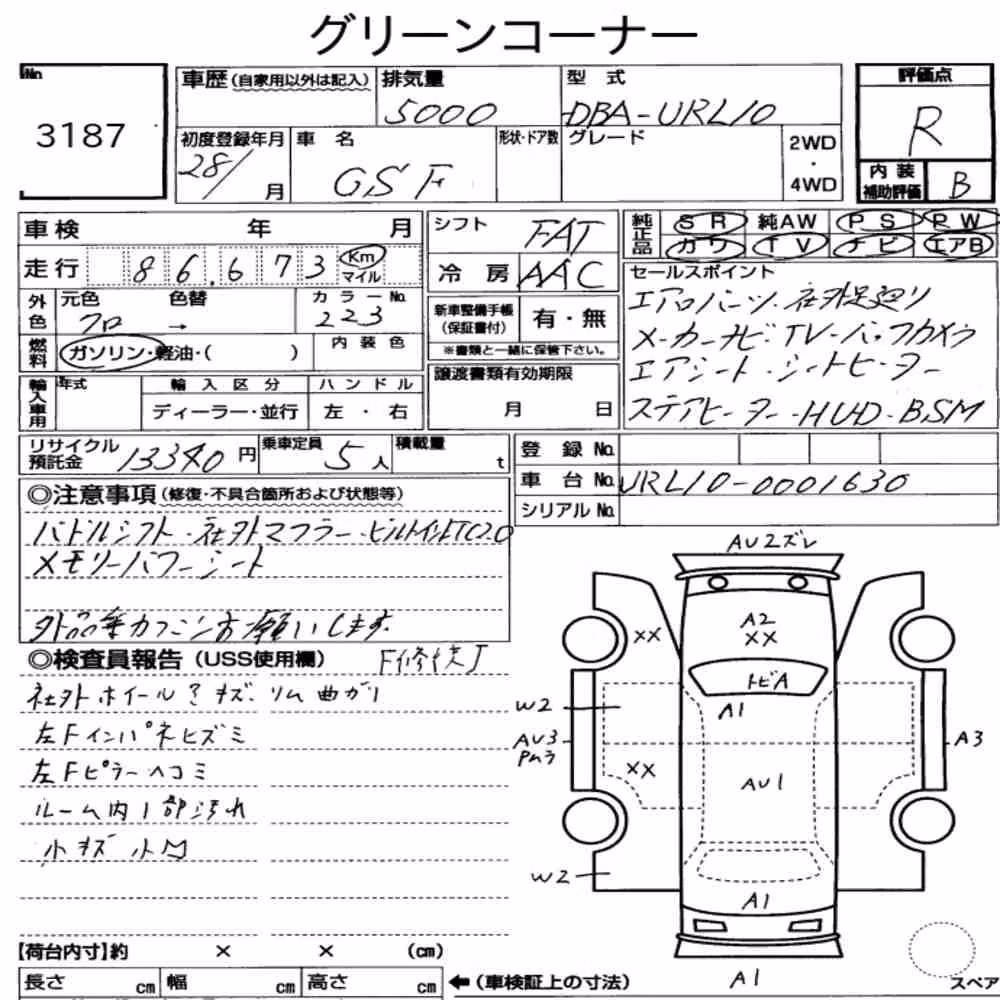 グリーンコーナー
No.
3187
車歴(自家用以外は記入)
排気量
5000
型 式
DBA-URL10
評価点
R
初度登録年月
28/ 月
車 名
GS F
形状・ドア数
グレード
2WD
・
4WD
内 装
補助評価
B
車検 年 月
シフト
FAT
純正品
SR 純AW PS PW
カワ TV ナビ エアB
走行
86,673
Km
マイル
冷 房
AAC
セールスポイント
エアロパーツ・社外足廻り
メーカーナビ・TV・バックカメラ
エアシート・シートヒーター
ステアヒーター・HUD・BSM
外色
元色 色替
クロ →
カラーNo.
223
新車整備手帳
(保証書付)
有・無
※書類と一緒に保管下さい。
燃料
ガソリン・軽油・( )
内 装 色
譲渡書類有効期限
月 日
輸入車用
年式
輸 入 区 分
ディーラー・並行
ハ ン ド ル
左 ・ 右
リサイクル
預託金
13340円
乗車定員
5人
積載量
t
登 録 No.
車 台 No.
URL10-0001630
シリアル No.
◎注意事項(修復・不具合箇所および状態等)
パドルシフト・社外マフラー・ビルトインETC2.0
メモリーパワーシート
外品無カクニンお願いします
◎検査員報告(USS使用欄)
F修埃J
社外ホイール?キズ リム曲ガリ
左Fインパネヒズミ
左Fピラーヘコミ
ルーム内1部汚れ
小キズ小M
AU2ズレ
A2
XX
XX
トビA
A1
W2
AU3
Pムラ
A3
XX
AU1
W2
A1
A1
【荷台内寸】約 × × (cm)
長さ cm 幅 cm 高さ cm
←(車検証上の寸法)
スペア